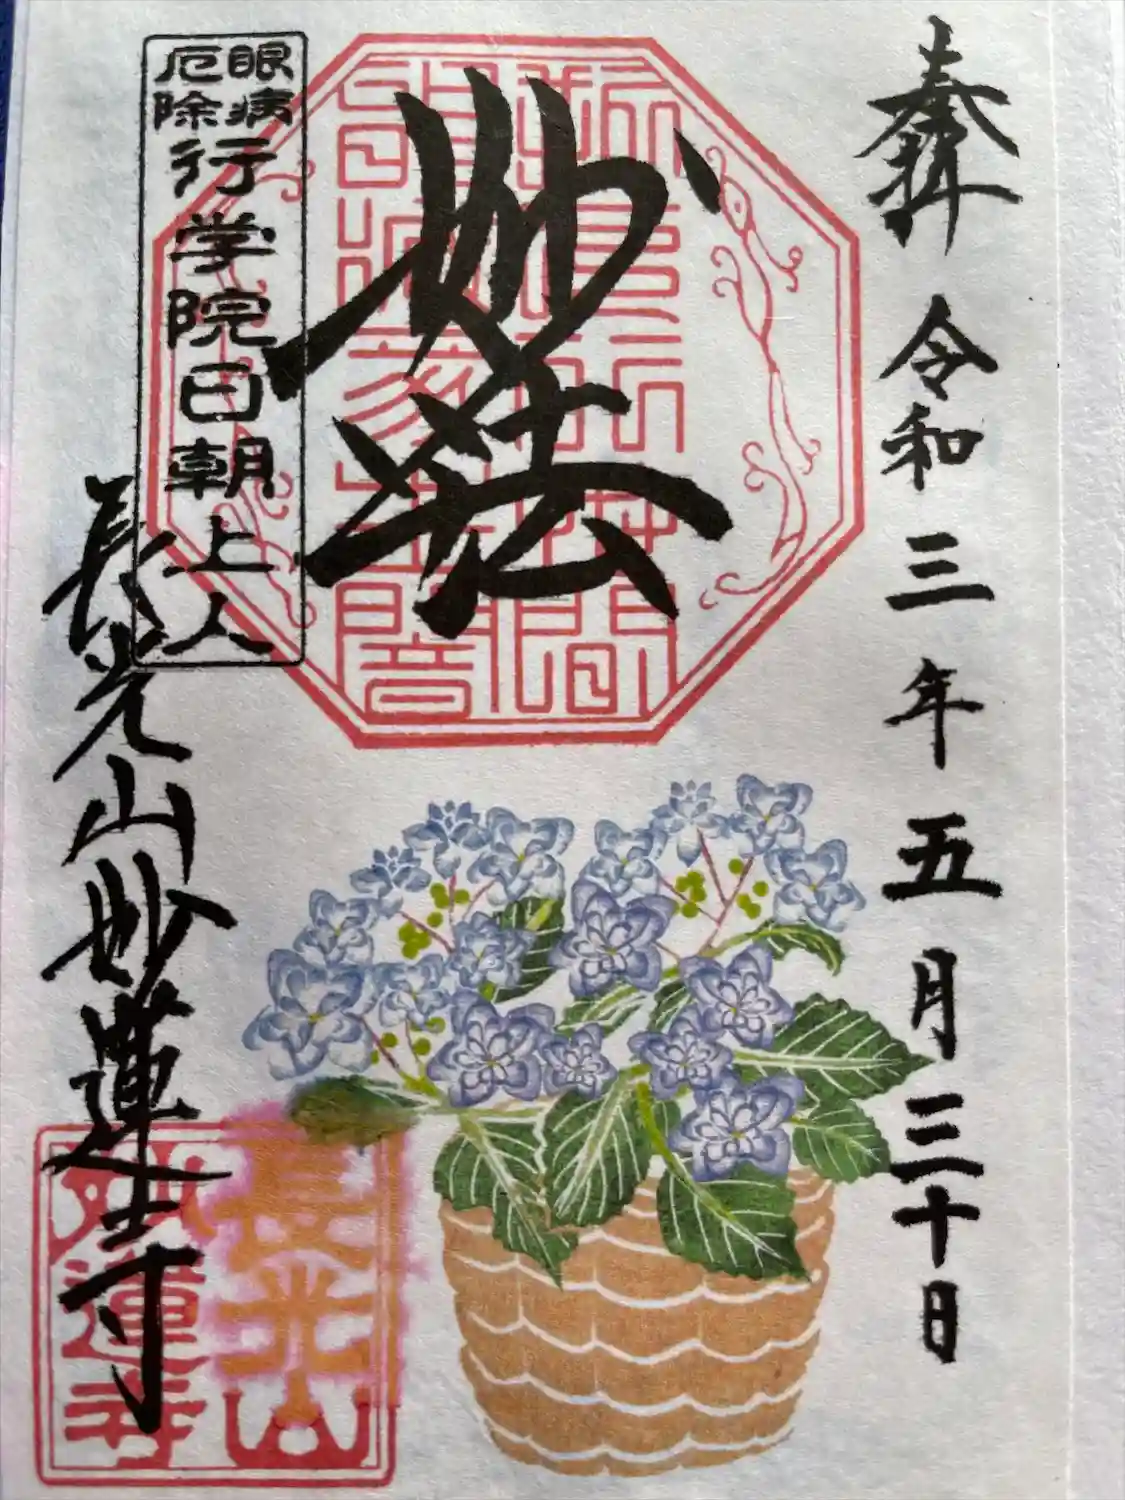 奉拝
令和三年五月三十日
妙法
眼病
厄除
行学院日朝上人
長光山妙蓮寺
長光山
妙蓮寺